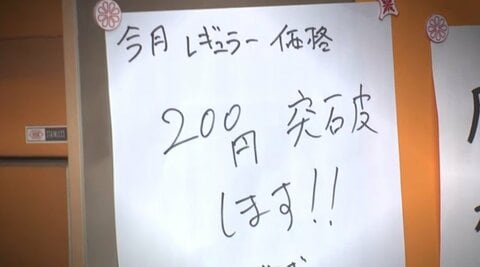 今月 レギュラー 価格
200円 突破
します!!